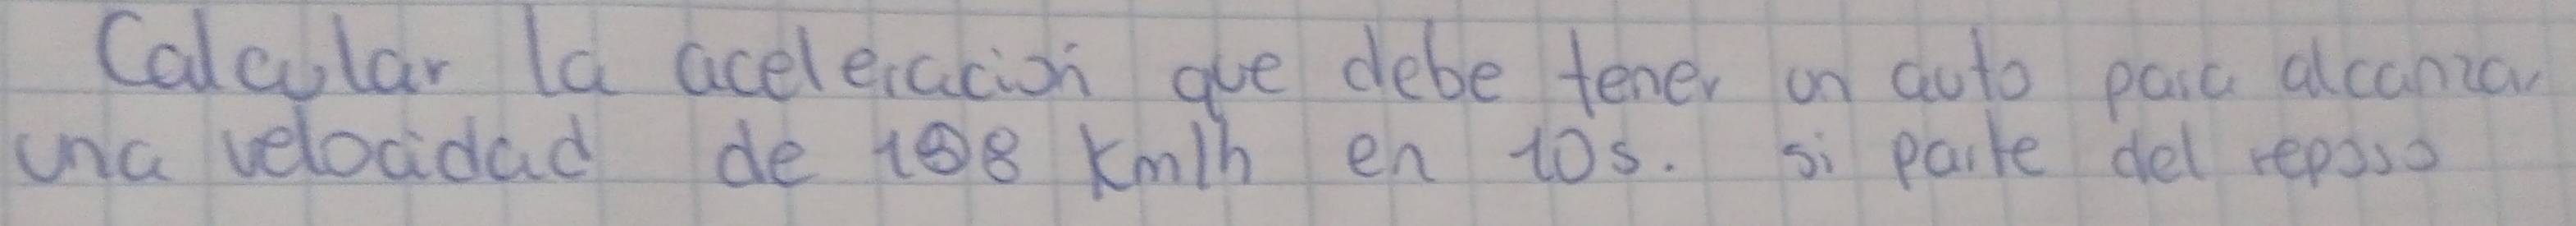 Calcular la aceleración que debe tener un auto para alcanzar
una velocidad de 108 Km/h en 10s. si parte del reposo